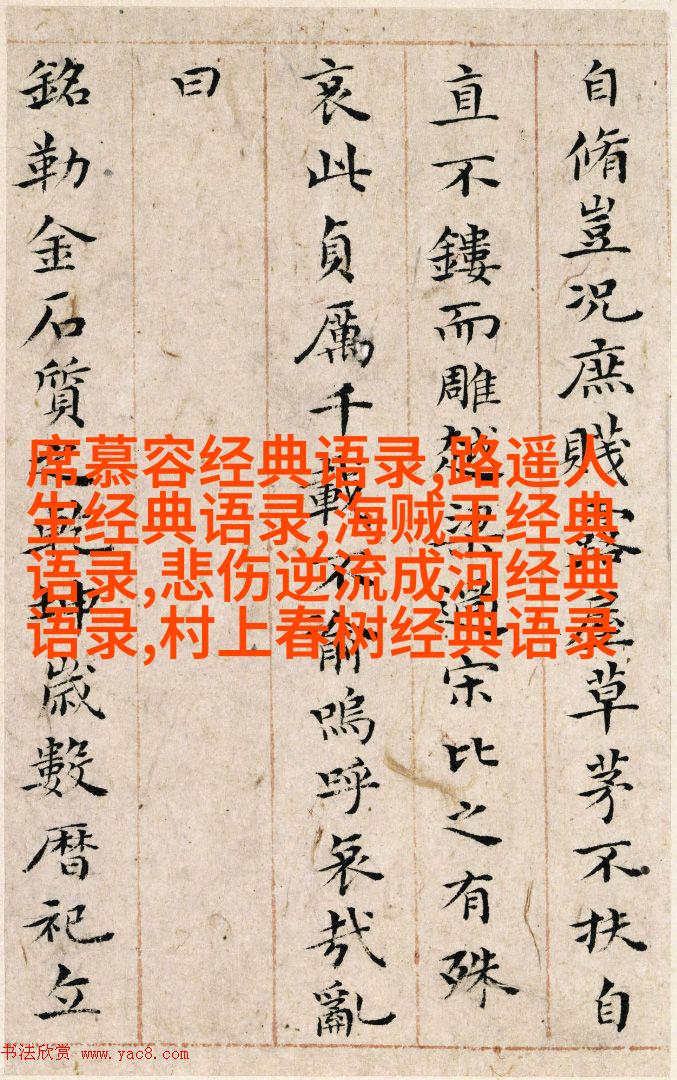 自脩豈况庶賤露屋草茅不扶自
直不鏤而雕越梁過宋比之有殊
哀此貞厲千載不渝嗚呼哀哉亂
曰
銘勒金石質坤歲數暦祀立
席慕容经典语录,路遥人
生经典语录,海贼王经典
语录,悲伤逆流成河经典
语录,村上春树经典语录
书法欣赏 www.yac8.com